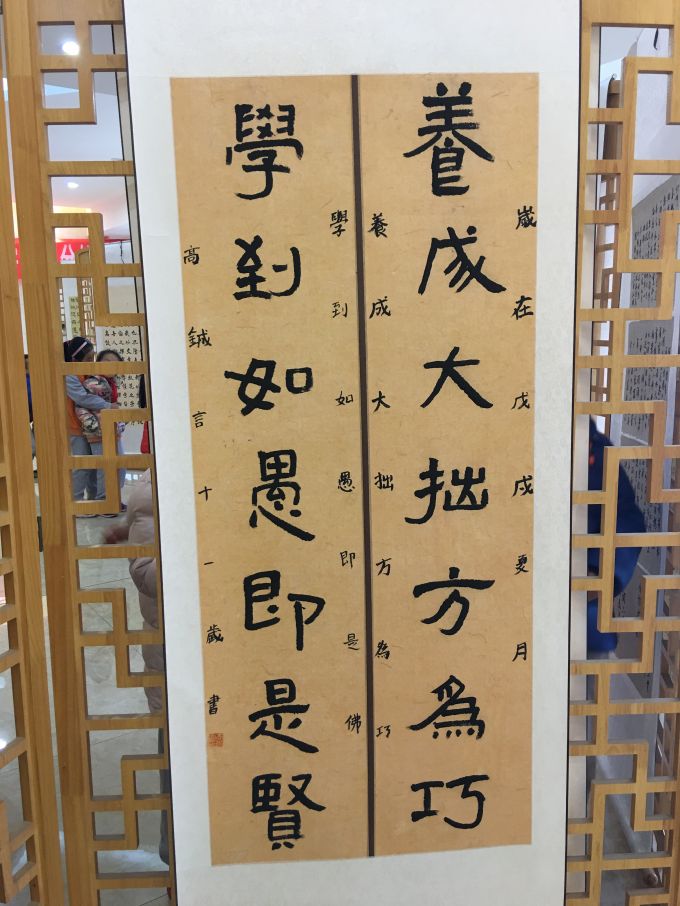 養成大拙方為巧
學到如愚即是賢
歲在戊戌夏月
養成大拙方為巧
學到如愚即是佛
高鋮言十一歲書